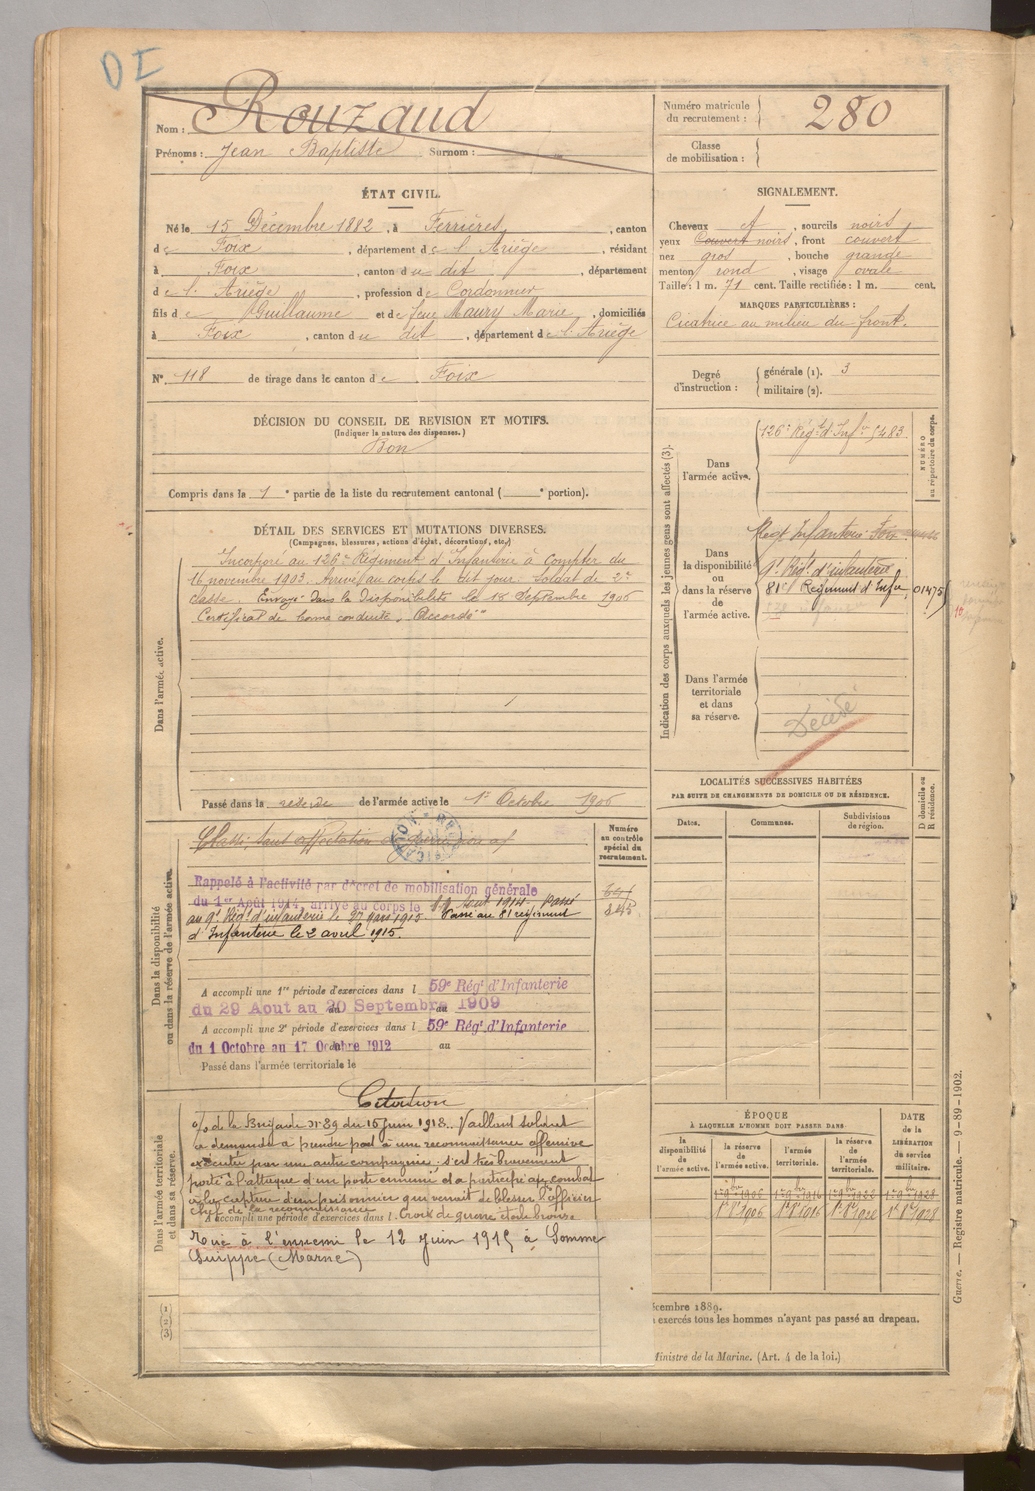 DI
Nom : Rouzaud
Prénoms : Jean Baptiste Surnom :
Numéro matricule du recrutement : 280
Classe de mobilisation :
ÉTAT CIVIL.
Né le 15 Décembre 1882, à Ferrières, canton
de Foix, département de l'Ariège, résidant
à Foix, canton du dit, département
de l'Ariège, profession de Cordonnier
fils de Guillaume et de feue Maury Marie, domiciliés
à Foix, canton du dit, département de l'Ariège
N° 118 de tirage dans le canton de Foix
SIGNALEMENT.
Cheveux et, sourcils noirs
yeux Couvert noirs, front couvert
nez gros, bouche grande
menton rond, visage ovale
Taille : 1 m. 71 cent. Taille rectifiée : 1 m. cent.
MARQUES PARTICULIÈRES :
Cicatrice au milieu du front.
Degré d'instruction : générale (1). 3
militaire (2).
DÉCISION DU CONSEIL DE REVISION ET MOTIFS.
(Indiquer la nature des dispenses.)
Bon
Compris dans la 1e partie de la liste du recrutement cantonal ( e portion).
DÉTAIL DES SERVICES ET MUTATIONS DIVERSES.
(Campagnes, blessures, actions d'éclat, décorations, etc.)
Dans l'armée active.
Incorporé au 126e Régiment d'Infanterie à Compter du
16 novembre 1903. Arrivé au corps le dit jour. Soldat de 2e
classe. Envoyé dans la Disponibilité le 18 Septembre 1906
Certificat de bonne conduite "Accordé"
Passé dans la réserve de l'armée active le 1er Octobre 1906
Indication des corps auxquels les jeunes gens sont affectés (3).
NUMÉRO au répertoire du corps.
Dans l'armée active.
126e Régt d'Infie 5483
Dans la disponibilité ou dans la réserve de l'armée active.
Régt Infanterie Foix
9e Régt d'infanterie
81e Régiment d'Infie 01475
Dans l'armée territoriale et dans sa réserve.
Décédé
LOCALITÉS SUCCESSIVES HABITÉES
PAR SUITE DE CHANGEMENTS DE DOMICILE OU DE RÉSIDENCE.
Dates. Communes. Subdivisions de région. D domicile ou R résidence.
Dans la disponibilité ou dans la réserve de l'armée active.
Numéro au contrôle spécial du recrutement.
245
Rappelé à l'activité par décret de mobilisation générale
du 1er Août 1914, arrivé au corps le août 1914. Passé
au 9e Régt d'infanterie le 27 mars 1915. Passé au 81 régiment
d'Infanterie le 2 avril 1915.
A accompli une 1re période d'exercices dans l 59e Régt d'Infanterie
du 29 Aout au 20 Septembre 1909
A accompli une 2e période d'exercices dans l 59e Régt d'Infanterie
du 1 Octobre au 17 Octobre 1912 au
Passé dans l'armée territoriale le
Dans l'armée territoriale et dans sa réserve.
Citation
o/ de la Brigade N° 89 du 15 juin 1918. Vaillant soldat
a demandé à prendre part à une reconnaissance offensive
exécutée par une autre compagnie. s'est très bravement
porté à l'attaque d'un poste ennemi et a participé au combat
à la capture d'un prisonnier qui venait de blesser l'officier
chef de la reconnaissance
A accompli une période d'exercices dans l. Croix de guerre étoile bronze
Tué à l'ennemi le 12 Juin 1915 à Somme
Suippe (Marne)
ÉPOQUE
À LAQUELLE L'HOMME DOIT PASSER DANS
la disponibilité de l'armée active. la réserve de l'armée active. l'armée territoriale. la réserve de l'armée territoriale.
DATE de la LIBÉRATION du service militaire.
(1) (2) (3)
écembre 1889.
exercés tous les hommes n'ayant pas passé au drapeau.
Ministre de la Marine. (Art. 4 de la loi.)
Guerre. — Registre matricule. — 9-89-1902.